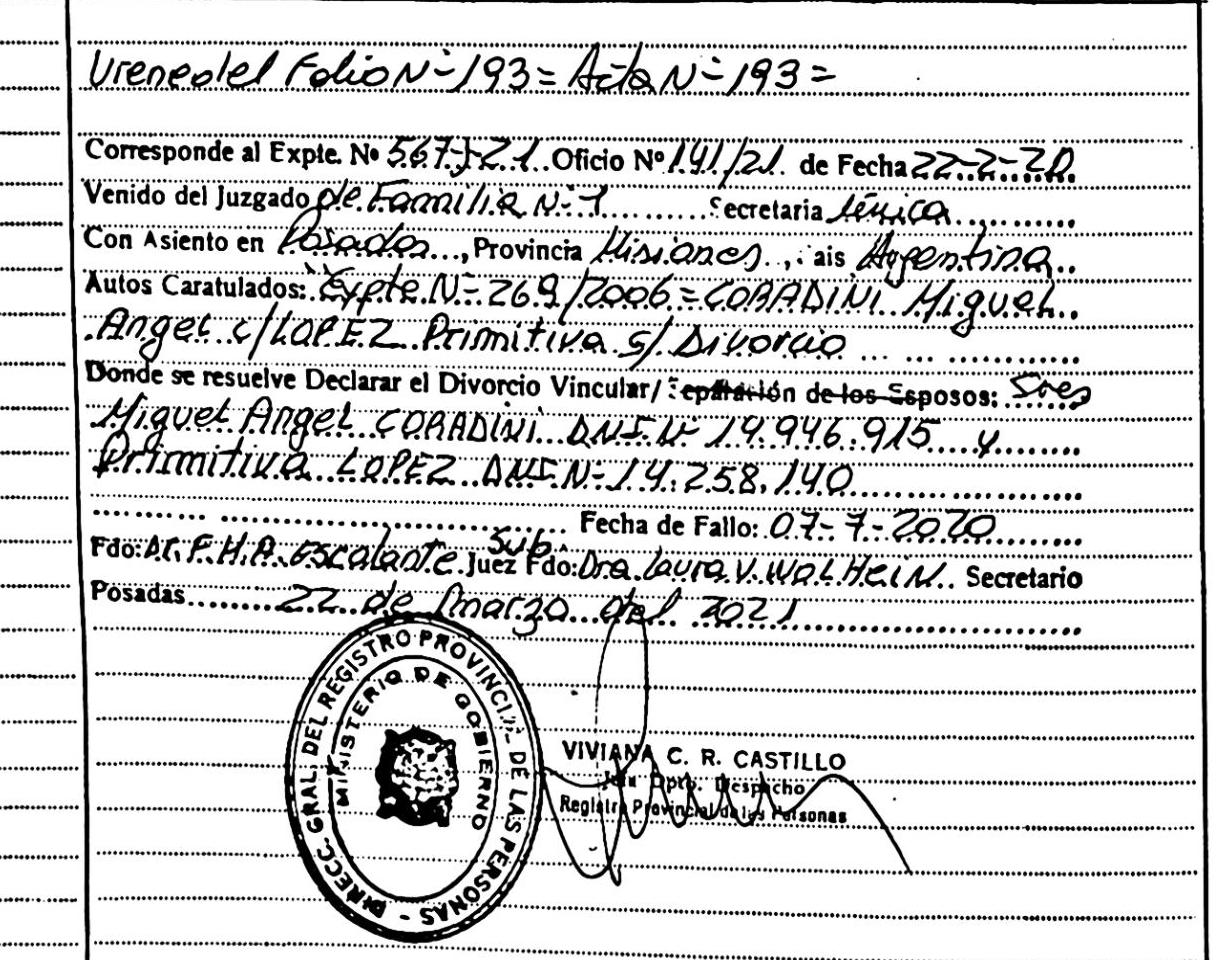 Viene del Folio Nº 193 = Acta Nº 193 =
Corresponde al Expte. Nº 567-J-21 Oficio Nº 141/21 de Fecha 22-2-20
Venido del Juzgado de Familia Nº 1 Secretaria Única
Con Asiento en Posadas, Provincia Misiones, País Argentina
Autos Caratulados: Expte. Nº 269/2006 = CORADINI Miguel
Angel c/ LOPEZ Primitiva s/ Divorcio
Donde se resuelve Declarar el Divorcio Vincular/ Separación de los Esposos: Sres
Miguel Angel CORADINI DNI Nº 14.946.915 y
Primitiva LOPEZ DNI Nº 14.258.140
Fecha de Fallo: 07-7-2020
Fdo: Dr. F.H.A. Escalante Sub. Juez Fdo: Dra. Laura V. WOLHEIN Secretario
Posadas 22 de Marzo del 2021
DIRECC. GRAL. DEL REGISTRO PROVINCIAL DE LAS PERSONAS -
MINISTERIO DE GOBIERNO
VIVIANA C. R. CASTILLO
Dpto. Despacho
Registro Provincial de las Personas